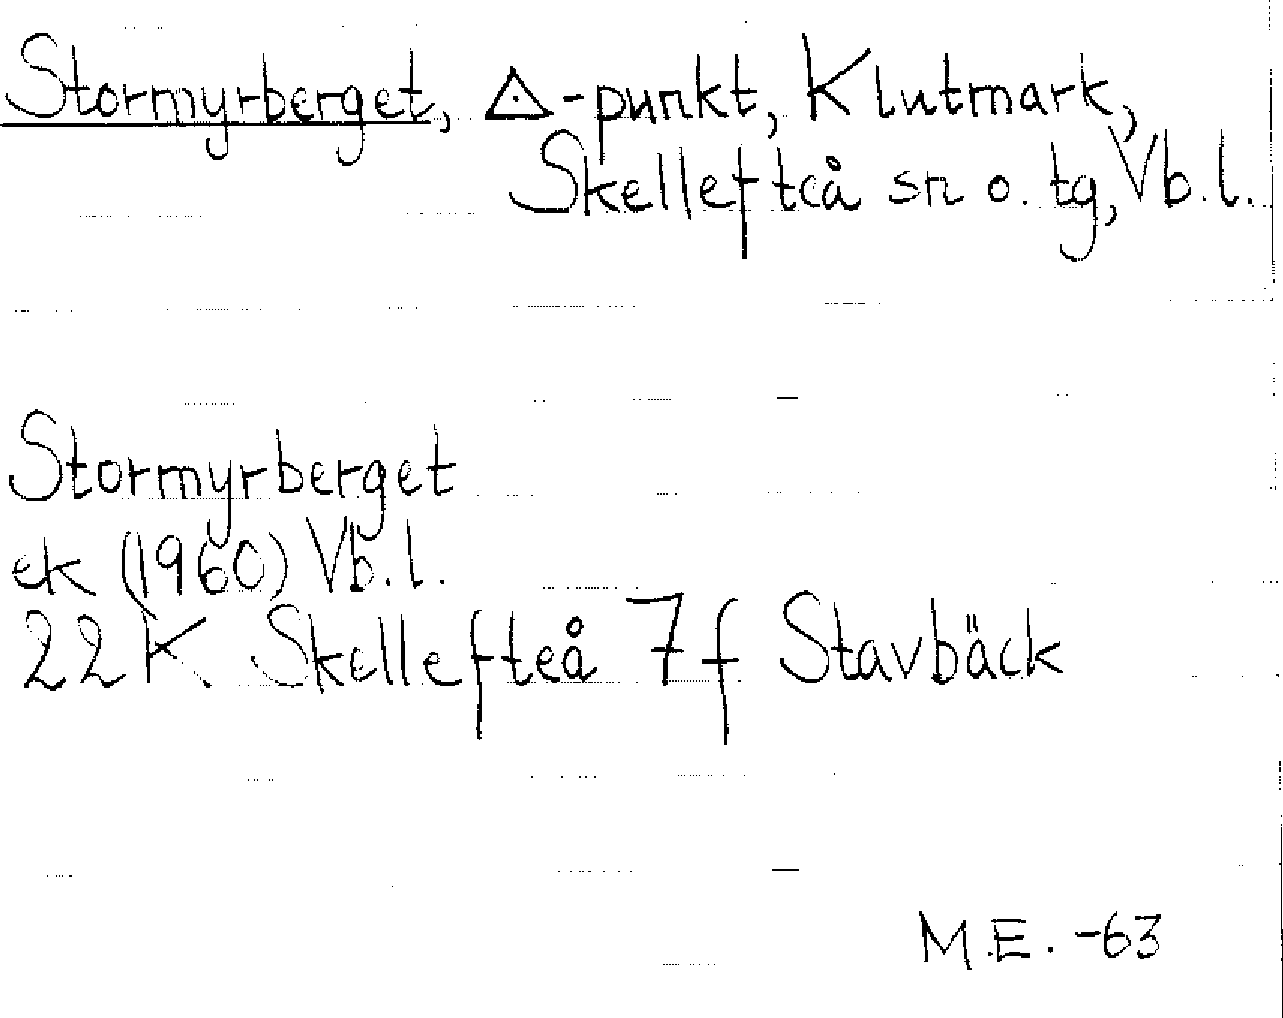 Stormyrberget, △-punkt, Klutmark,
Skellefteå sn o. tg, Vb.l.
Stormyrberget
ek (1960) Vb.l.
22K Skellefteå 7f Stavbäck
M.E. -63